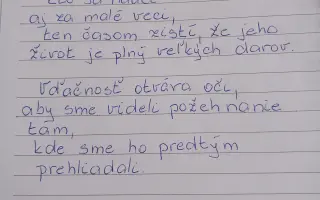 aj za malé veci,
ten časom zistí, že jeho
život je plný veľkých darov.
Vďačnosť otvára oči,
aby sme videli požehnanie
tam,
kde sme ho predtým
prehliadali.